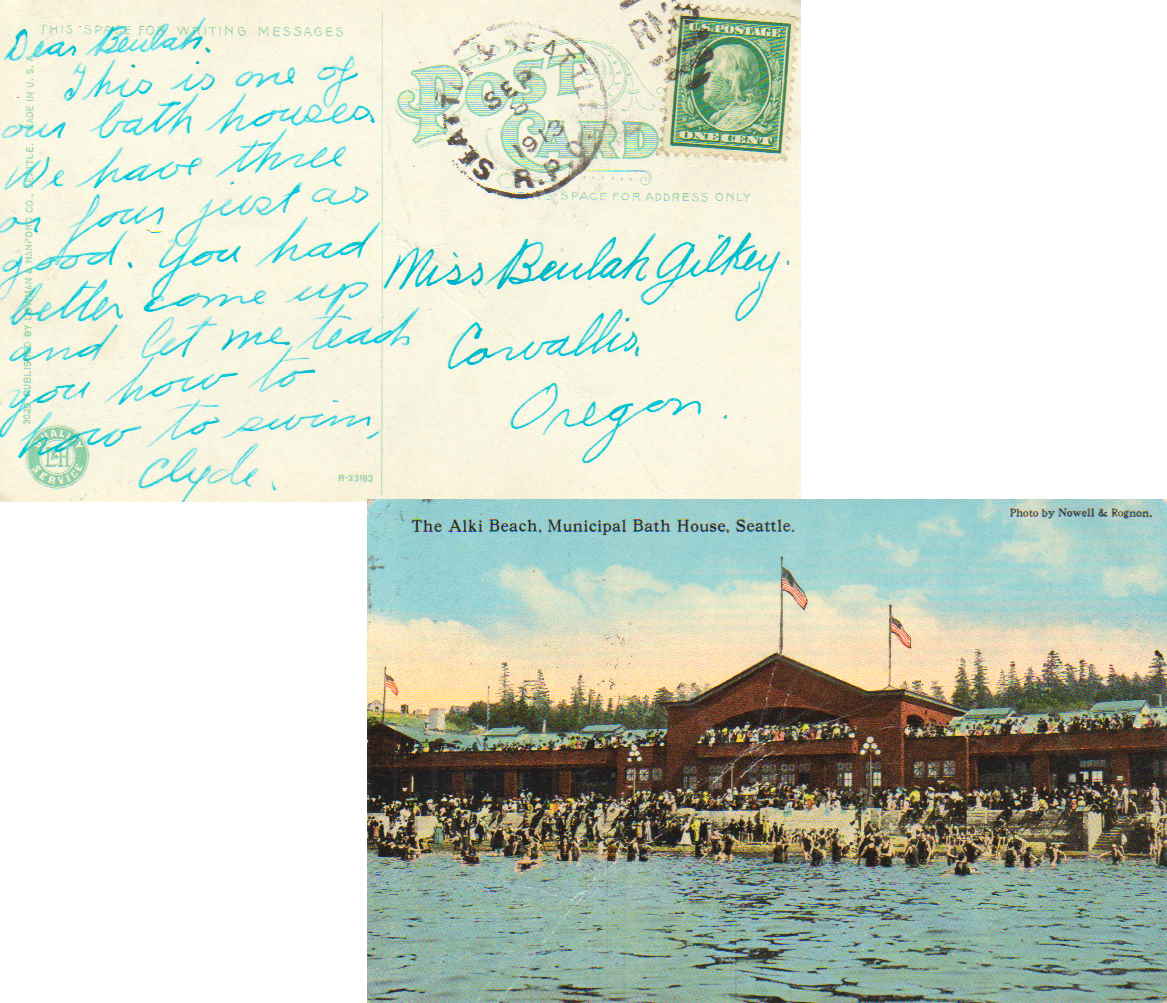 THIS SPACE FOR WRITING MESSAGES
Dear Beulah.
This is one of
our bath houses.
We have three
or four just as
good. You had
better come up
and let me teach
you how to
how to swim,
Clyde.
QUALITY
L&H
SERVICE
R-33183
POST
CARD
SEATTLE
SEP
8
1913
R.P.O.
U.S. POSTAGE
ONE CENT
SPACE FOR ADDRESS ONLY
Miss Beulah Gilkey.
Corvallis,
Oregon.
The Alki Beach, Municipal Bath House, Seattle.
Photo by Nowell & Rognon.